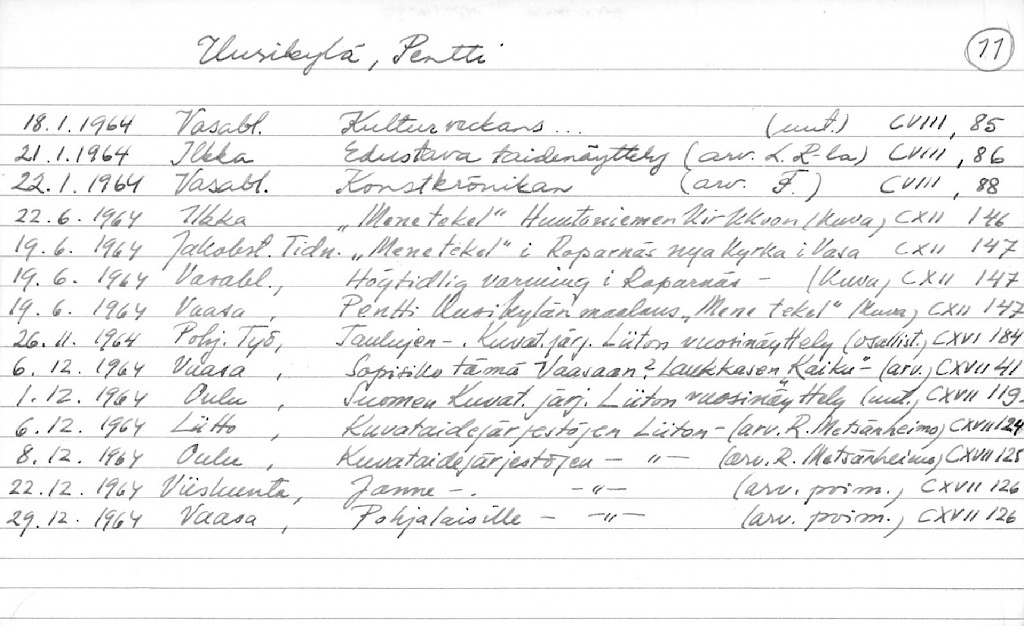 Uusikylä, Pentti 11
18.1.1964 Vasabl. Kulturveckans ... (uut.) CVIII, 85
21.1.1964 Ilkka Edustava taidenäyttely (arv. L. R-la) CVIII, 86
22.1.1964 Vasabl. Konstkrönikan (arv. F.) CVIII, 88
22.6.1964 Ilkka "Mene tekel" Huutoniemen kirkkoon (kuva) CXII 146
19.6.1964 Jakobst. Tidn. "Mene tekel" i Roparnäs nya kyrka i Vasa CXII 147
19.6.1964 Vasabl., Högtidlig varning i Roparnäs - (kuva) CXII 147
19.6.1964 Vaasa, Pentti Uusikylän maalaus "Mene tekel" (kuva) CXII 147
26.11.1964 Pohj. Työ, Taulujen -. Kuvat.järj. Liiton vuosinäyttely (osallist.) CXVI 184
6.12.1964 Vaasa, Sopisiko tämä Vaasaan? Laukkasen "Kaiku" - (arv.) CXVII 41
1.12.1964 Oulu, Suomen Kuvat. järj. Liiton vuosinäyttely (uut.) CXVII 119
6.12.1964 Liitto, Kuvataidejärjestöjen Liiton - (arv. R. Metsänheimo) CXVII 124
8.12.1964 Oulu, Kuvataidejärjestöjen - " - (arv. R. Metsänheimo) CXVII 125
22.12.1964 Viiskunta, Janne -. - " - (arv. poim.) CXVII 126
29.12.1964 Vaasa, Pohjalaisille - - " - (arv. poim.) CXVII 126